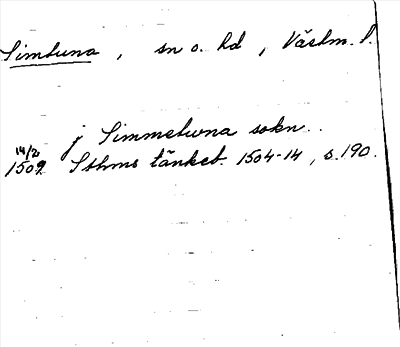 Simtuna, sn o. hd, Västm. l.
j Simmetuna sokn..
14/2 1509. Sthms tänkeb. 1504-14, s. 190.